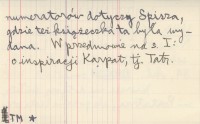 numeratorów dotyczą Spisza,
gdzie też książeczka ta była wy-
dana. W przedmowie na s. I:
o inspiracji Karpat, tj. Tatr.
TM *